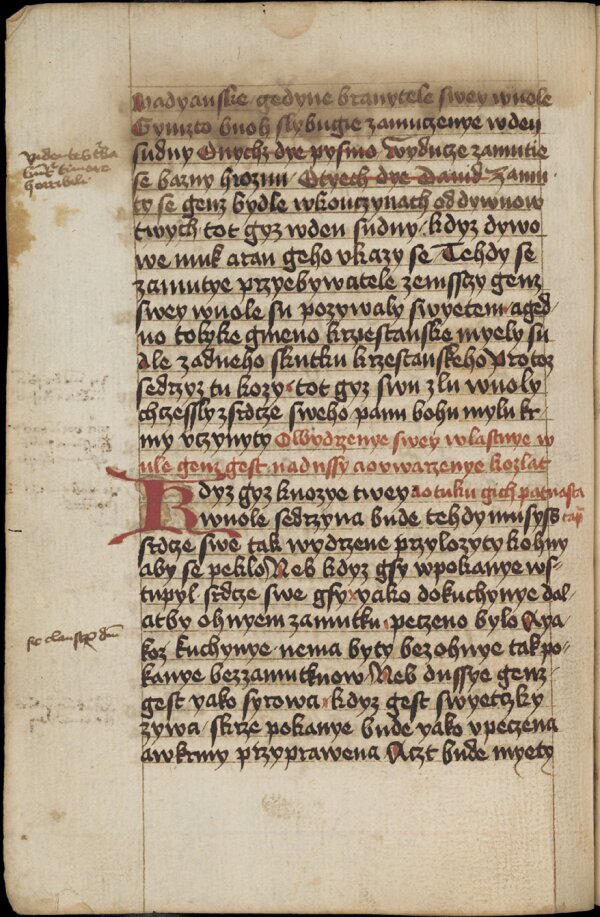 wadyanske gedyne branytele swey wuole
Gymzto buoh slybugie zamuczenye wden
sudny Onychz dye pysmo wyducze zamutie
se bazny hrozmi Otyech dye Dauid Zamu
ty se genz bydle wkonczynach od dywuow
twych tot gyz wden sudny kdyz dywo
we muk aran geho vkazy se Tehdy se
zamutye przyebywatele zemsszy genz
swey wuole su pozywaly swyetem aged
no tolyke gmeno krzestanske myely su
Ale zadneho skutku krzestanskeho Protoz
sedrzyz tu kozy tot gyz swu zlu wuoly
chczessly zsrdcze sweho panu bohu mylu kr
my vczynyty Owydrzenye swey wlastnye w
uole genz gest nadussy aowarzenye kozlat
Kdyz gyz kuozye twey aotuku gich patnasta
wuole sedrzyna bude tehdy musyss cap
srdcze swe tak wydrzene przylozyty kohny
aby se peklo Neb kdyz gsy wpokanye ws
tupyl srdcze swe gsy yako dokuchynye dal
atby ohnyem zamutku peczeno bylo Aya
koz kuchynye nema byty bezohnye tak po
kanye bezzamutkuow Neb dussye genz
gest yako syrowa kdyz gest swyetzky
zywa skrze pokanye bude yako vpeczena
awkrmy przyprawena Aczt bude myety